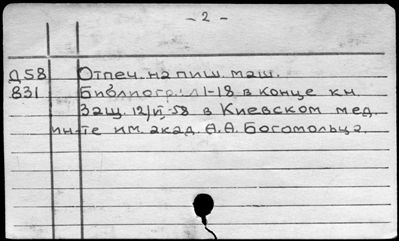 - 2 -
Д58 Отпеч. на пиш. маш.
831 Библиогр.: л1-18 в конце кн.
Защ. 12/VI-58 в Киевском мед.
ин-те им. акад. А.А. Богомольца.